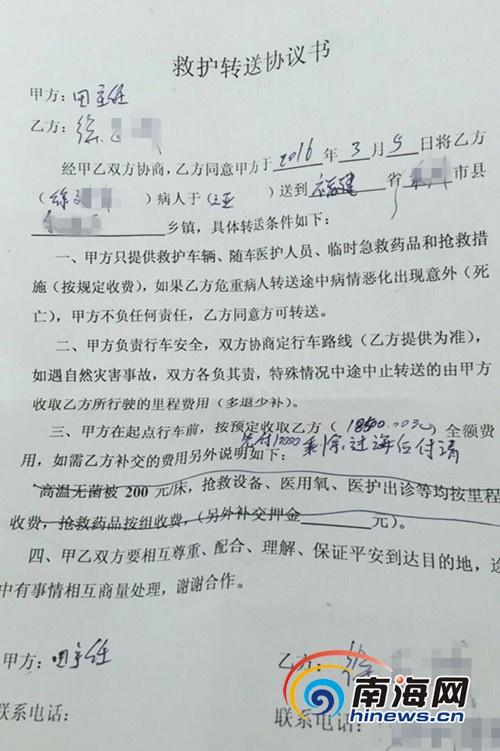 救护转送协议书
甲方：田主任
乙方：徐
经甲乙双方协商，乙方同意甲方于 2016 年 3 月 5 日将乙方
（徐 ）病人于（三亚 ）送到 福建 省 市县
乡镇，具体转送条件如下：
一、甲方只提供救护车辆、随车医护人员、临时急救药品和抢救措
施（按规定收费），如果乙方危重病人转送途中病情恶化出现意外（死
亡），甲方不负任何责任，乙方同意方可转送。
二、甲方负责行车安全，双方协商定行车路线（乙方提供为准），
如遇自然灾害事故，双方各负其责，特殊情况中途中止转送的由甲方
收取乙方所行驶的里程费用（多退少补）。
三、甲方在起点行车前，按预定收取乙方（ 18500.00元）全额费
先付10000 剩余过海后付清
用，如需乙方补交的费用另外说明如下：
高温无菌被 200 元/床，抢救设备、医用氧、医护出诊等均按里程
收费，抢救药品按组收费，（另外补交押金 元）。
四、甲乙双方要相互尊重、配合、理解、保证平安到达目的地，途
中有事情相互商量处理，谢谢合作。
甲方：田主任
乙方：徐
联系电话：
联系电话：
南海网
hinews.cn